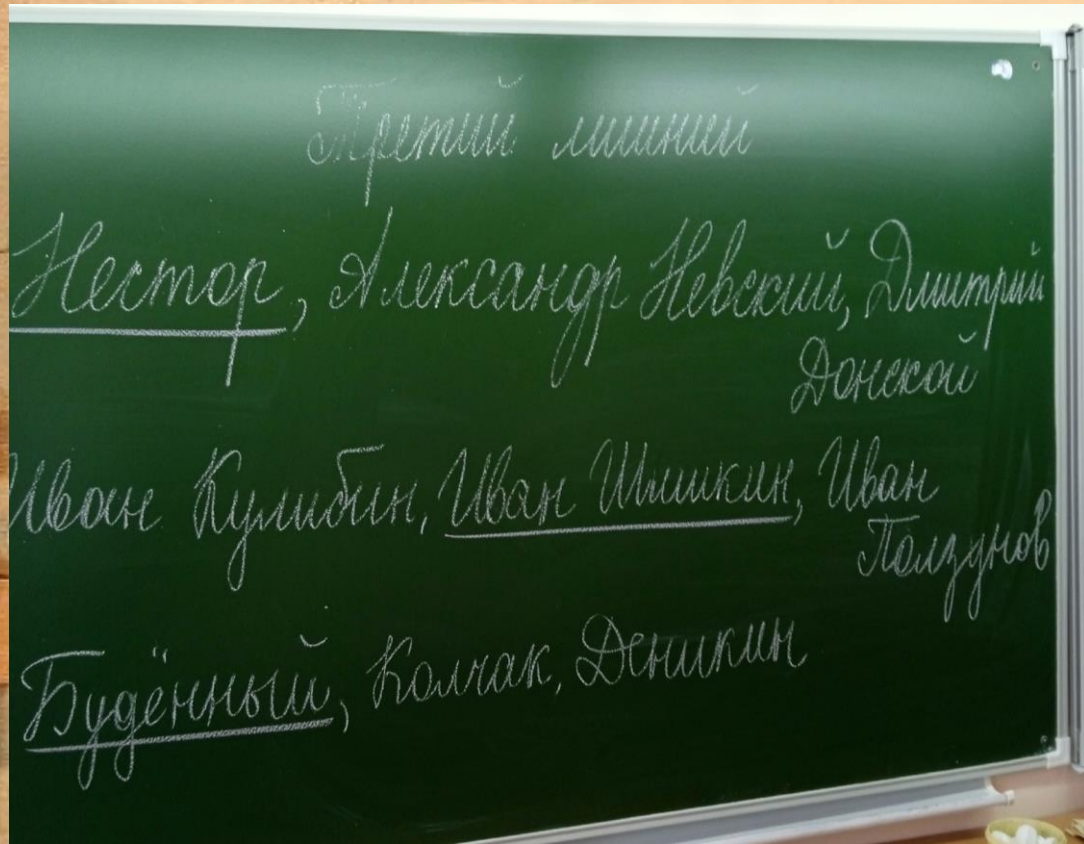 Третий лишний
Нестор, Александр Невский, Дмитрий
Донской
Иван Кулибин, Иван Шишкин, Иван
Ползунов
Будённый, Колчак, Деникин